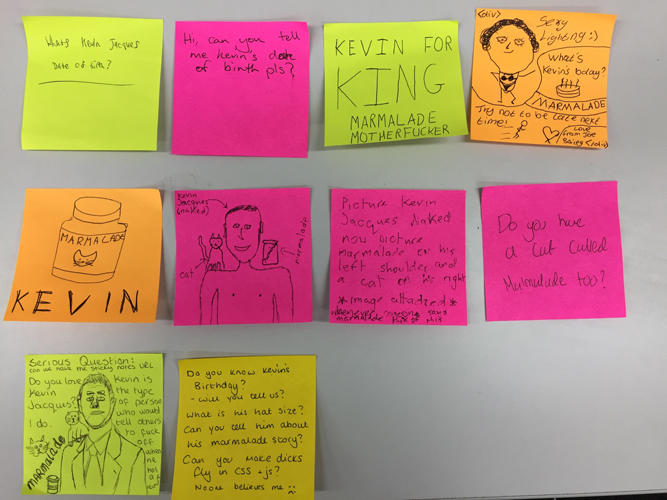 What's Kevin Jacques
Date of birth?
Hi, can you tell
me Kevin's date
of birth pls?
KEVIN FOR
KING
MARMALADE
MOTHERFUCKER
<div>
Sexy
Lighting :)
What's
Kevin's bday?
MARMALADE
Try not to be late next
time!
Love
from Joe
</div>
MARMALADE
KEVIN
Kevin
Jacques
(naked)
cat
marmalade
Picture Kevin
Jacques naked
now picture
marmalade on his
left shoulder and
a cat on his right
*image attached*
whenever says
marmalade this
Do you have
a cat called
Marmalade too?
Serious Question:
can we have the sticky notes
Do you love
Kevin
Jacques?
I do.
Kevin is
the type
of person
who would
tell others
to fuck
off
when
he
marmalade
Do you know Kevin's
Birthday?
- Will you tell us?
What is his hat size?
Can you tell him about
his marmalade story?
Can you make dicks
fly in CSS + js?
Noone believes me :(